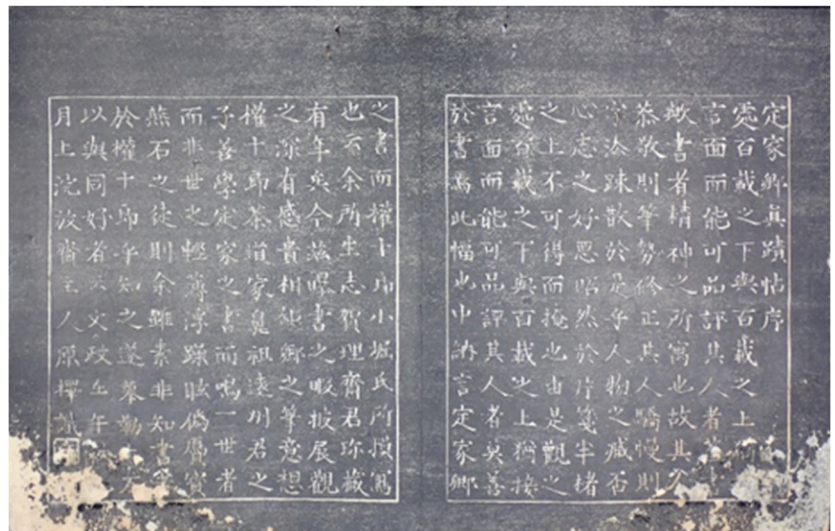 定家卿眞蹟帖序
處百載之下與百載之上
言面而能可品評其人者
歟書者精神之所寓也故其
恭敬則筆勢矜正其人驕慢則
字法疎散於是乎人物之臧否
心志之好惡昭然於片箋半楮
之上不可得而掩也由是觀之
處百載之下與百載之上稱接
言面而能可品評其人者矣善
於書焉此幅也中納言定家卿
之書而權十郎小堀氏所摸寫
也云余所生志賀理齋君珍藏
有年矣今茲曝書之暇披展觀
之深有感貴相卿之筆意想
權十郎茶道家鼻祖遠州君之
子善學定家之書而鳴一世者
而非世之輕薄浮躁眩偽贋寶
燕石之徒則余雖素非知書
於權十郎乎知之遂摹勒
以與同好者云文政壬午
月上浣放齋主人原擇